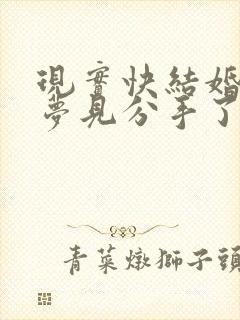 現實快結婚
夢見分手了
青菜燉獅子頭